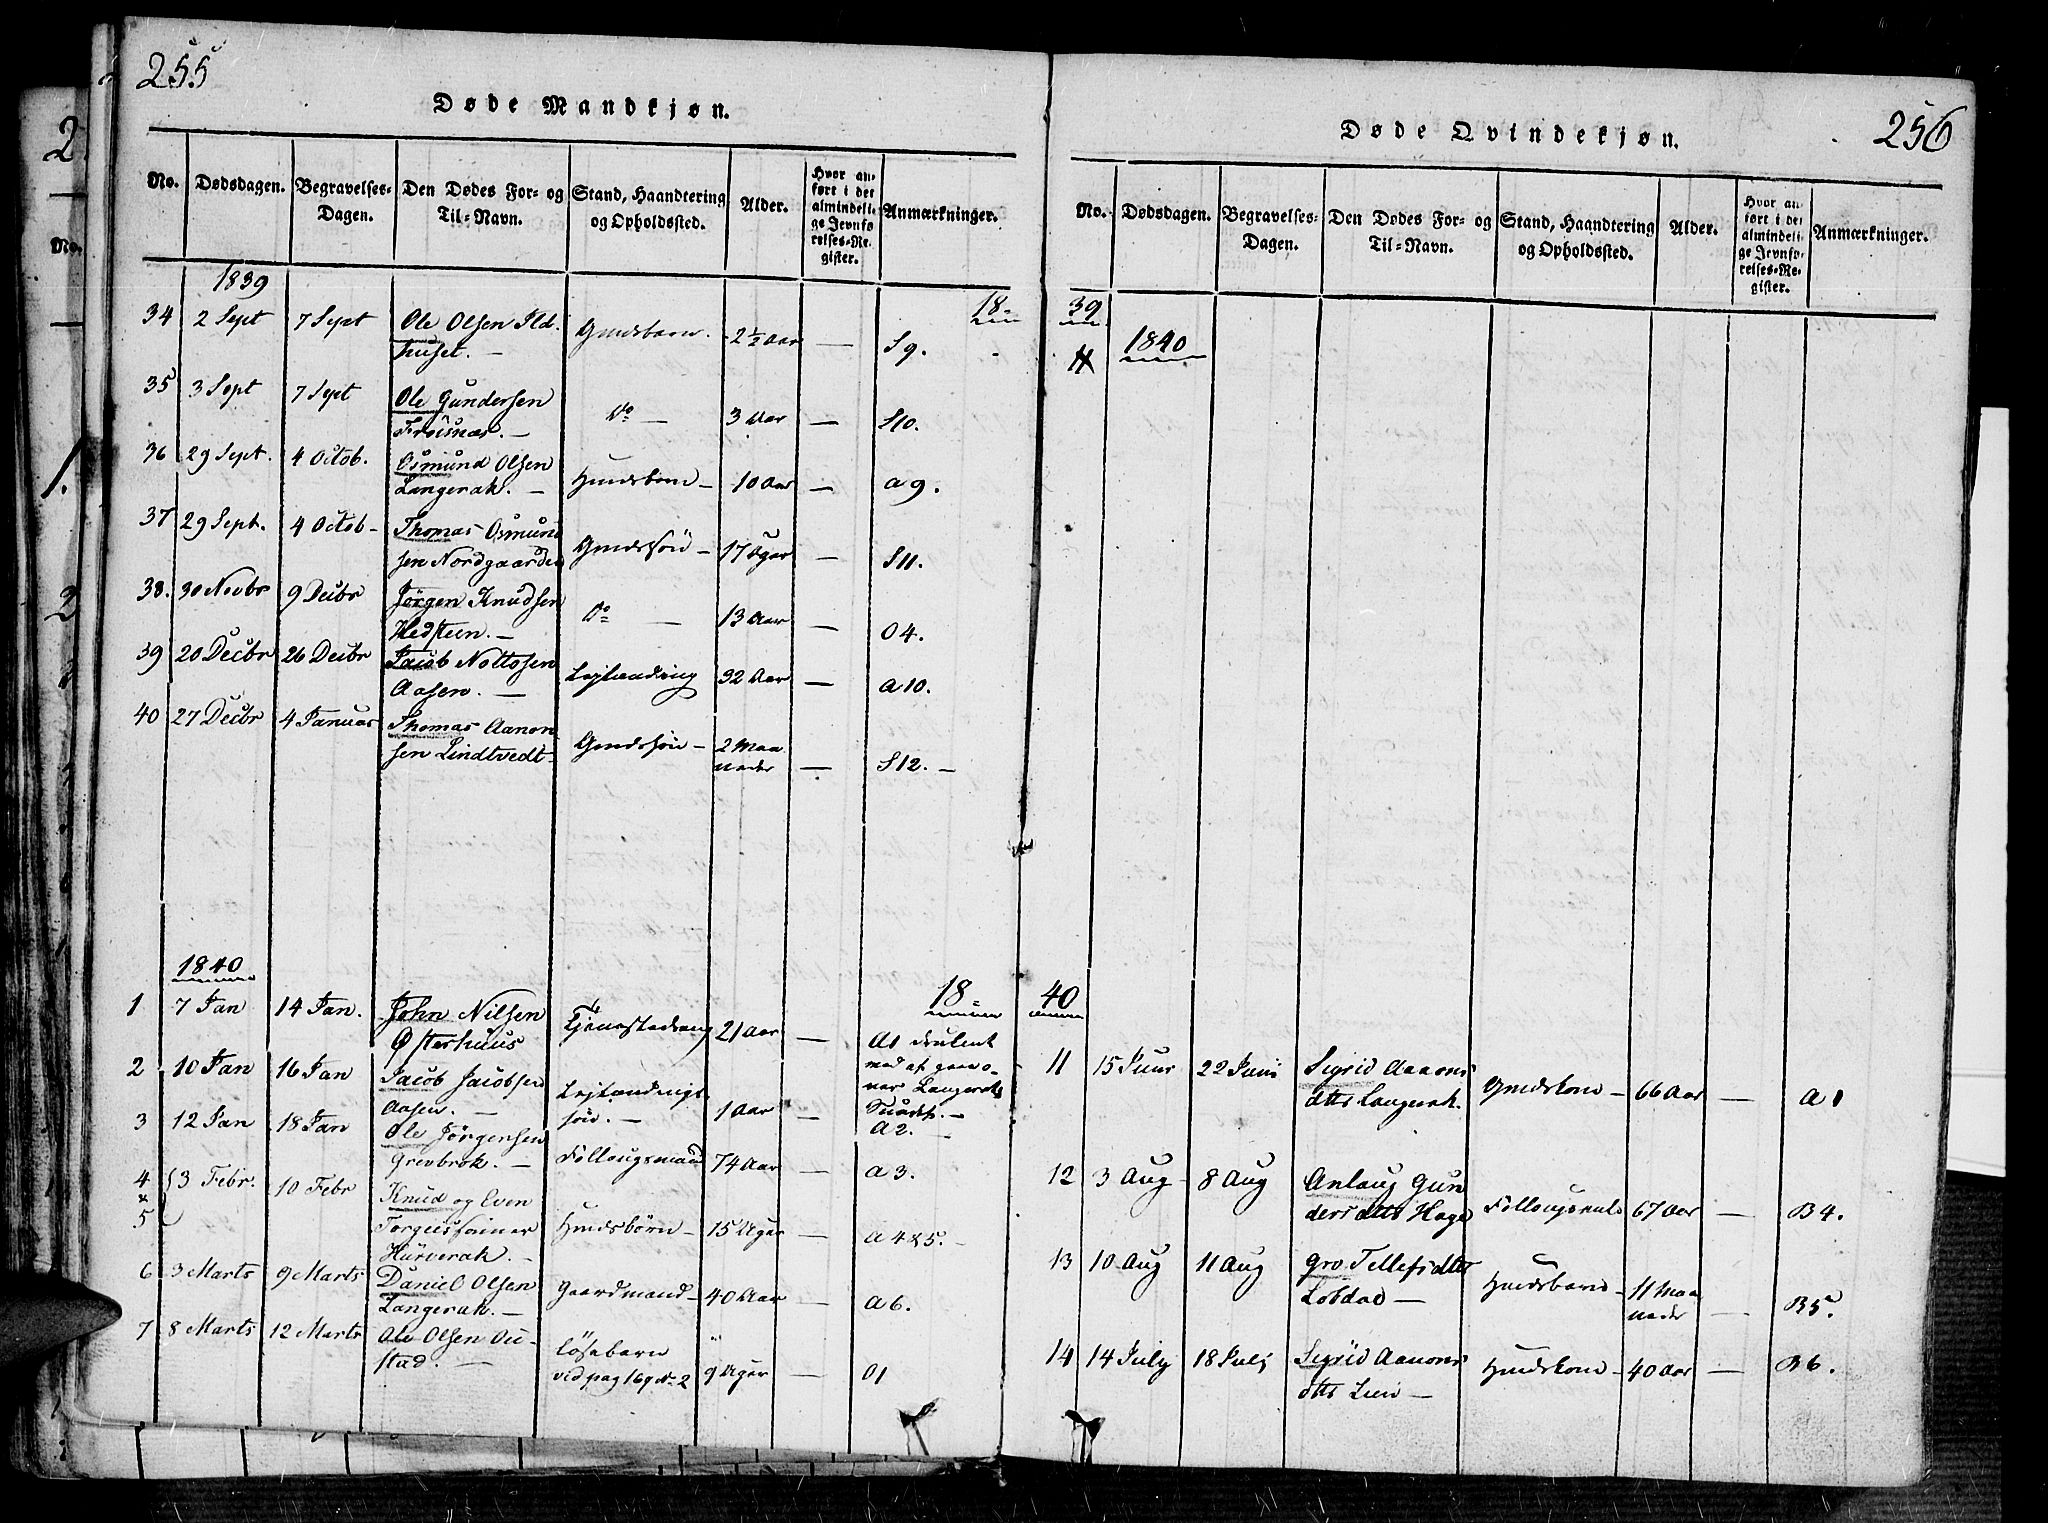 255
Døde Mandkjøn.
No.
Dødsdagen.
Begravelses-
Dagen.
Den Dødes For- og
Til-Navn.
Stand, Haandtering
og Opholdssted.
Alder.
Hvor an-
ført i det
almindeli-
ge Jevnfø
relses-Re-
gister.
Anmærkninger.
1839
18-
34 2 Sept 7 Sept Ole Olsen Ild-
huset. — Gmdsbarn. 2½ Aar — S9.
35 3 Sept 7 Sept Ole Gundersen
Frøisnæs. — Do — 3 Aar — S10.
36 29 Sept. 4 Octob. Osmund Olsen
Langerak. — Hmdsbarn — 10 Aar — A9.
37 29 Sept. 4 Octob- Thomas Osmund
sen Nordgaarden Gmdssøn — 17 Uger — S11.
38. 30 Novbr 9 Decbr Jørgen Knudsen
Hedsteen. — Do — 13 Aar — O4.
39 20 Decbr 26 Decbr Jacob Nottosen
Aasen. — Lejlænding 32 Aar — A10.
40 27 Decbr 4 Januar Thomas Aanon
sen Lindtvedt — Gmdssøn — 2 Maa
neder — S12. —
1840
18-
1 7 Jan 14 Jan. John Nilsen
Østerhuus Tjenestedreng 21 Aar — A1
Langeraks
2 10 Jan 16 Jan Jacob Jacobsen
Aasen. — Lejlændings
søn. — 1 Aar — A2. —
3 12 Jan 18 Jan Ole Jørgensen
Grevbrok. — Føllougsmand 74 Aar — A3.
4
&
5 3 Febr. 10 Febr Knud og Even
Torgiussønner
Hurverak. — Hmdsbørn — 15 Uger — A4&5. —
6 3 Marts 9 Marts Daniel Olsen
Langerak. — Gaardmand — 40 Aar — A6.
7 8 Marts 12 Marts Ole Olsen Ou-
stad. — Løsebarn
vid pag 169 No 2 9 Uger — O1
256
Døde Qvindekjøn.
No.
Dødsdagen.
Begravelses-
Dagen.
Den Dødes For- og
Til-Navn.
Stand, Haandtering
og Opholdssted.
Alder.
Hvor an-
ført i det
almindeli-
ge Jevnfø-
relses-Re-
gister.
Anmærkninger.
39
1840
40
11 15 Juni 22 Juni Sigrid Aanons
dtts Langerak. Gmdskone — 66 Aar — A1
12 3 Aug — 8 Aug Anlaug Gun
dersdtts Hage Føllougsenke 67 Aar — B4.
13 10 Aug 11 Aug Gro Tellefsdtts
Løbdal — Hmdsbarn — 11 Maa
neder — B5.
14 14 July 18 Julj Sigrid Aanons
dtts Lien — Hmdskone — 40 Aar — B6.